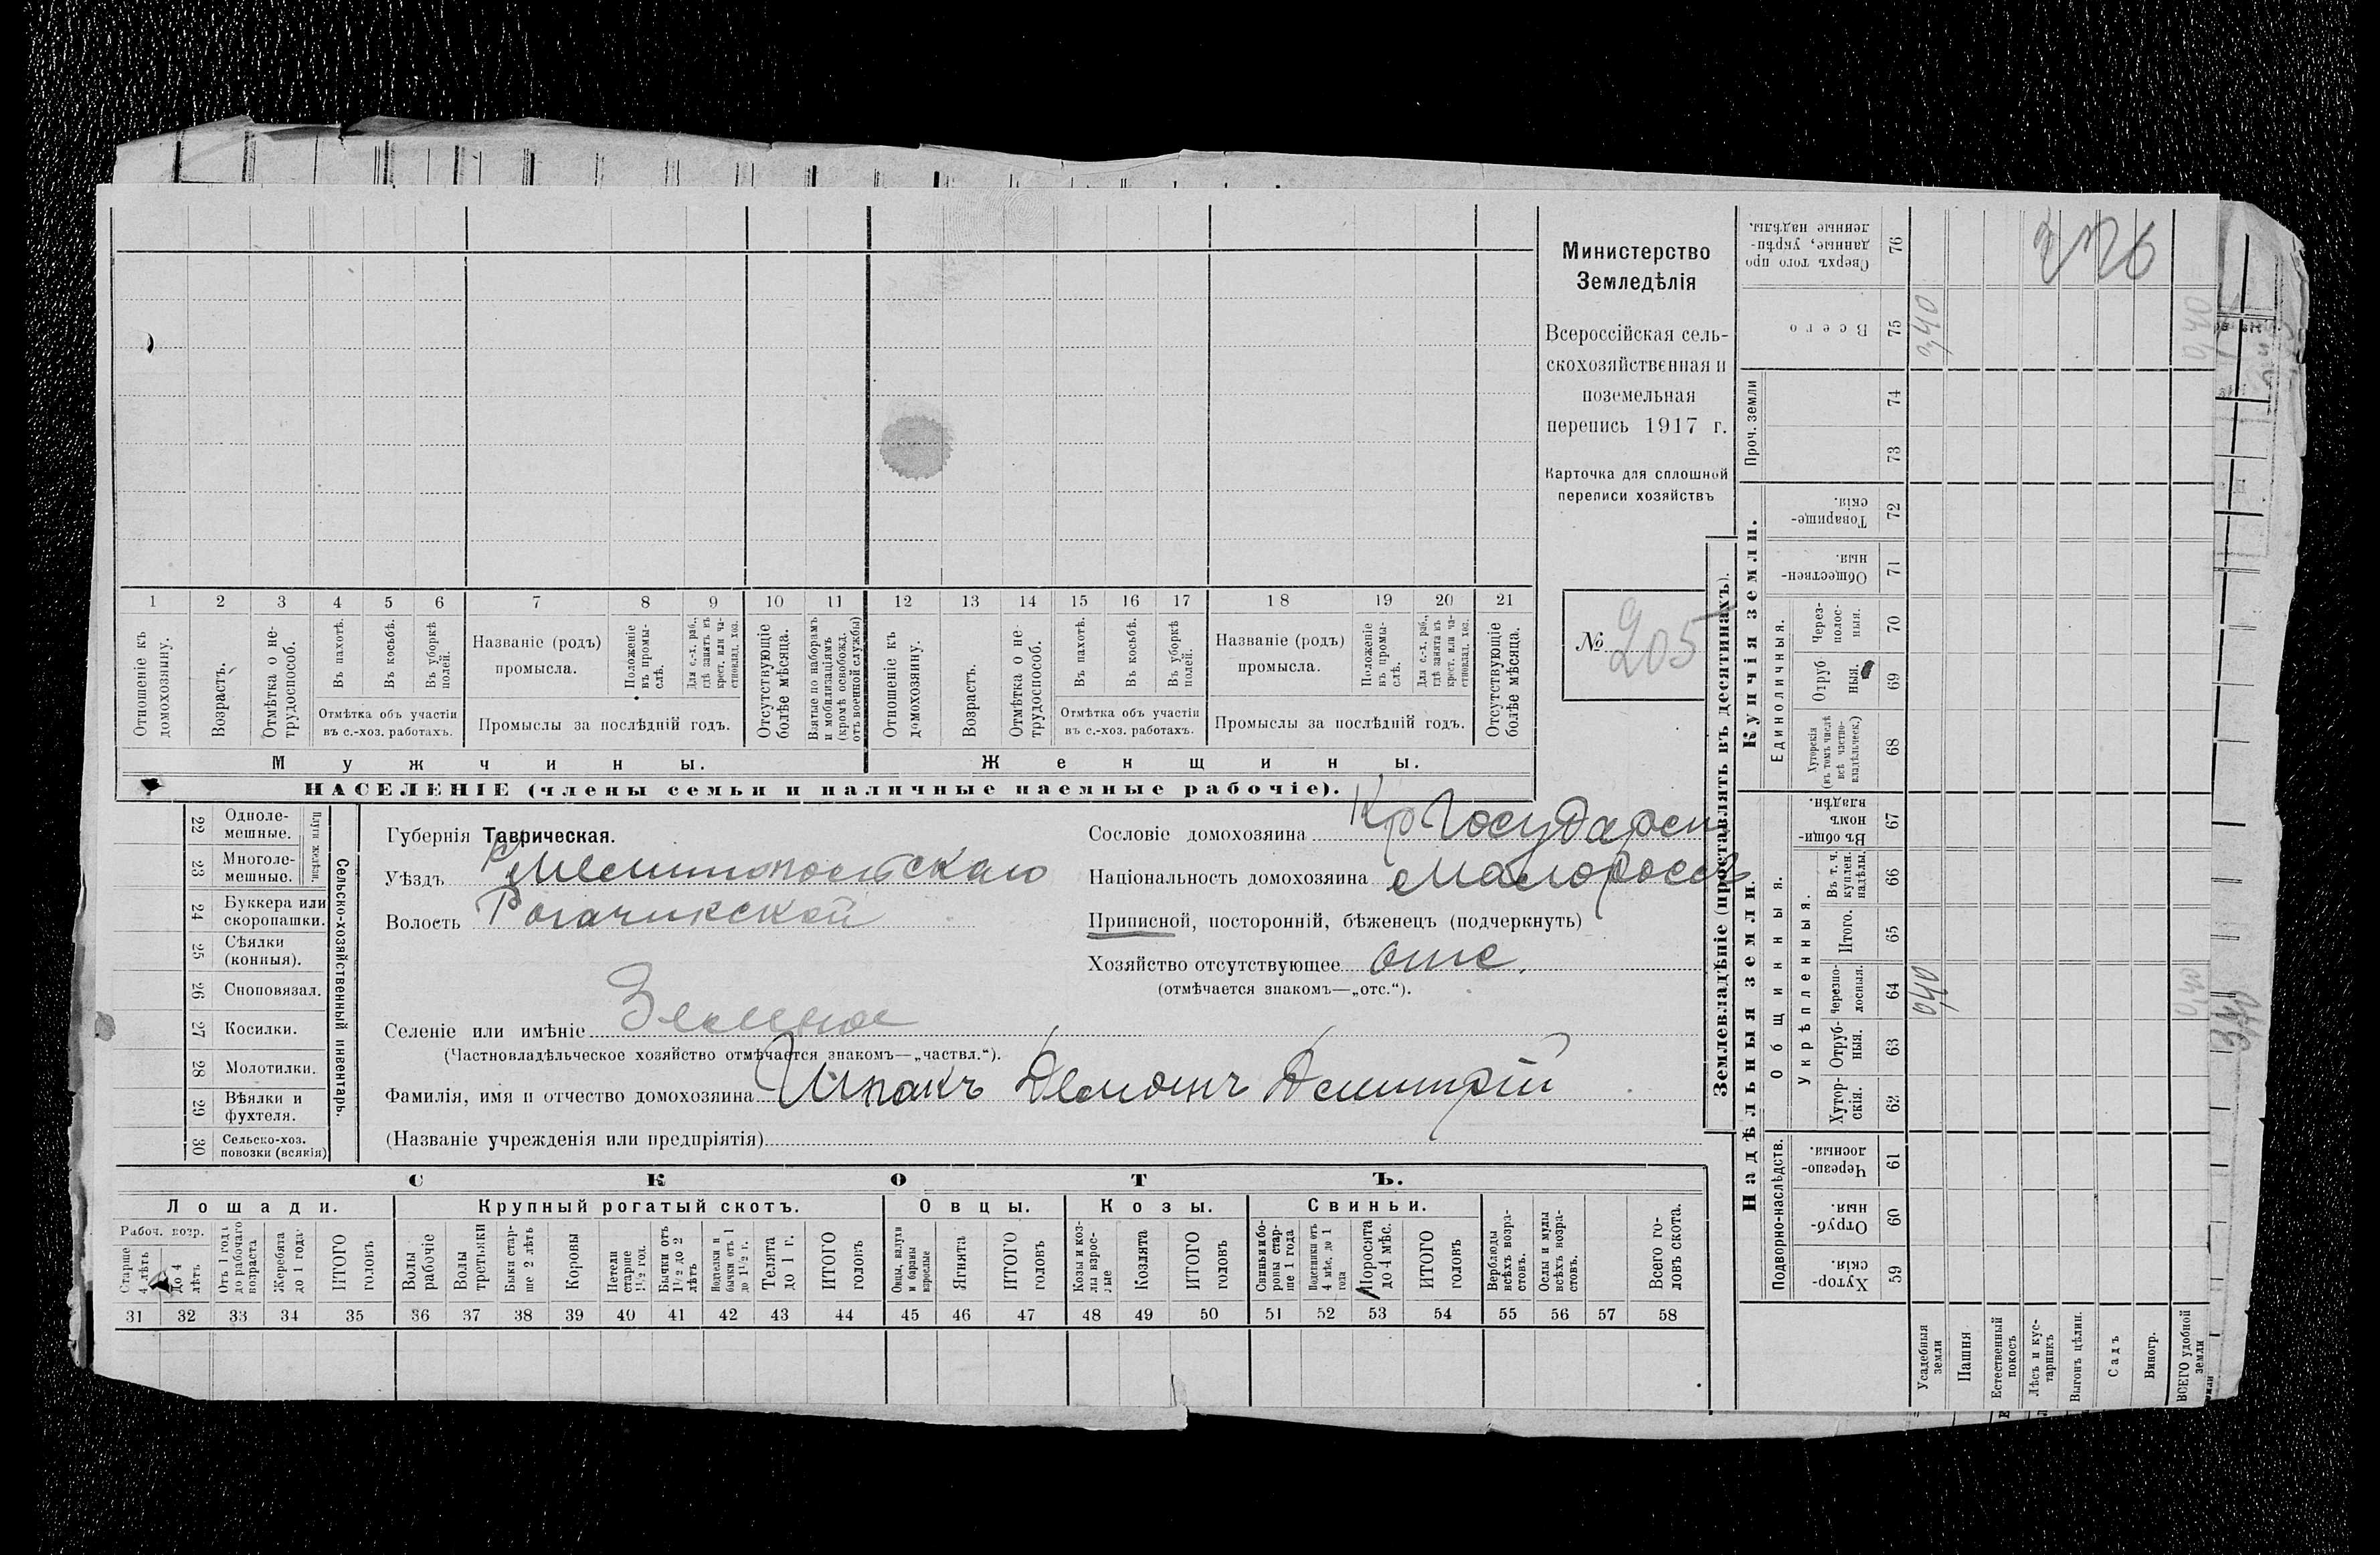 Министерство
Земледѣлія
Всероссійская сель-
скохозяйственная и
поземельная
перепись 1917 г.
Карточка для сплошной
переписи хозяйствъ
№ 205
1 2 3 4 5 6 7 8 9 10 11 12 13 14 15 16 17 18 19 20 21
Отношеніе къ домохозяину.
Возрастъ.
Отмѣтка о не-трудоспособ.
Въ пахотѣ.
Въ косьбѣ.
Въ уборкѣ полей.
Отмѣтка объ участіи
въ с.-хоз. работахъ.
Названіе (родъ)
промысла.
Положеніе въ промы-слѣ.
Для с.-х. раб., гдѣ занятъ въ крест. или ча-стновлад. хоз.
Промыслы за послѣдній годъ.
Отсутствующіе болѣе мѣсяца.
Взятые по наборамъ и мобилизаціямъ (кромѣ освобожд. отъ военной службы)
Отношеніе къ домохозяину.
Возрастъ.
Отмѣтка о не-трудоспособ.
Въ пахотѣ.
Въ косьбѣ.
Въ уборкѣ полей.
Отмѣтка объ участіи
въ с.-хоз. работахъ.
Названіе (родъ)
промысла.
Положеніе въ промы-слѣ.
Для с.-х. раб., гдѣ занята въ крест. или ча-стновлад. хоз.
Промыслы за послѣдній годъ.
Отсутствующіе болѣе мѣсяца.
Мужчины.
Женщины.
НАСЕЛЕНІЕ (члены семьи и наличные наемные рабочіе).
Сельско-хозяйственный инвентарь.
Плуги желѣзн.
22 Одноле-мешные.
23 Многоле-мешные.
24 Буккера или скоропашки.
25 Сѣялки (конныя).
26 Сноповязал.
27 Косилки.
28 Молотилки.
29 Вѣялки и фухтеля.
30 Сельско-хоз. повозки (всякія)
Губернія Таврическая.
Уѣздъ Мелитопольскаго
Волость Рогачикской
Селеніе или имѣніе Зеленое
(Частновладѣльческое хозяйство отмѣчается знакомъ—„частвл.“).
Фамилія, имя и отчество домохозяина Шпакъ Демянъ Дмитрій
(Названіе учрежденія или предпріятія)
Сословіе домохозяина Кр Государст
Національность домохозяина Малороссъ
Приписной, посторонній, бѣженецъ (подчеркнуть)
Хозяйство отсутствующее отс.
(отмѣчается знакомъ—„отс.“).
СКОТЪ.
Лошади.
Крупный рогатый скотъ.
Овцы.
Козы.
Свиньи.
Рабоч. возр.
Старше 4 лѣтъ
до 4 лѣтъ
Отъ 1 года до рабочаго возраста
Жеребята до 1 года
ИТОГО головъ
Волы рабочіе
Волы третьяки
Быки стар-ше 2 лѣтъ
Коровы
Нетели старше 1½ год.
Бычки отъ 1½ до 2 лѣтъ
Подтелки и бычки отъ 1 до 1½ г.
Телята до 1 г.
ИТОГО головъ
Овцы, валухи и бараны взрослые
Ягнята
ИТОГО головъ
Козы и коз-лы взрос-лые
Козлята
ИТОГО головъ
Свиньи и бо-ровы стар-ше 1 года
Подсвинки отъ 4 мѣс. до 1 года
Поросята до 4 мѣс.
ИТОГО головъ
Верблюды всѣхъ возра-стовъ.
Ослы и мулы всѣхъ возра-стовъ.
Всего го-ловъ скота.
31 32 33 34 35 36 37 38 39 40 41 42 43 44 45 46 47 48 49 50 51 52 53 54 55 56 57 58
Землевладѣніе (проставлять въ десятинахъ).
Надѣльныя земли.
Купчія земли.
Проч. земли
Подворно-наслѣдств.
Общинныя.
Укрѣпленныя.
Единоличныя.
Хутор-скія. 59
Отруб-ныя. 60
Черезпо-лосныя. 61
Хутор-скія. 62
Отруб-ныя. 63
Черезпо-лосныя. 64
Итого. 65
Въ т. ч. куплен. надѣлы. 66
Въ общи-номъ владѣн. 67
Хуторскія (въ томъ числѣ всѣ частно-владѣльческ.) 68
Отруб-ныя. 69
Через-полос-ныя. 70
Обществен-ныя. 71
Товарище-скія. 72
73
74
Всего 75
Сверхъ того про-данные, укрѣп-ленные надѣлы. 76
Усадебныя земли
0,40
0,40
Пашня
Естественный покосъ
Лѣсъ и кус-тарникъ
Выгонъ цѣлин.
Садъ
Виногр.
ВСЕГО удобной земли
0,40
0,40